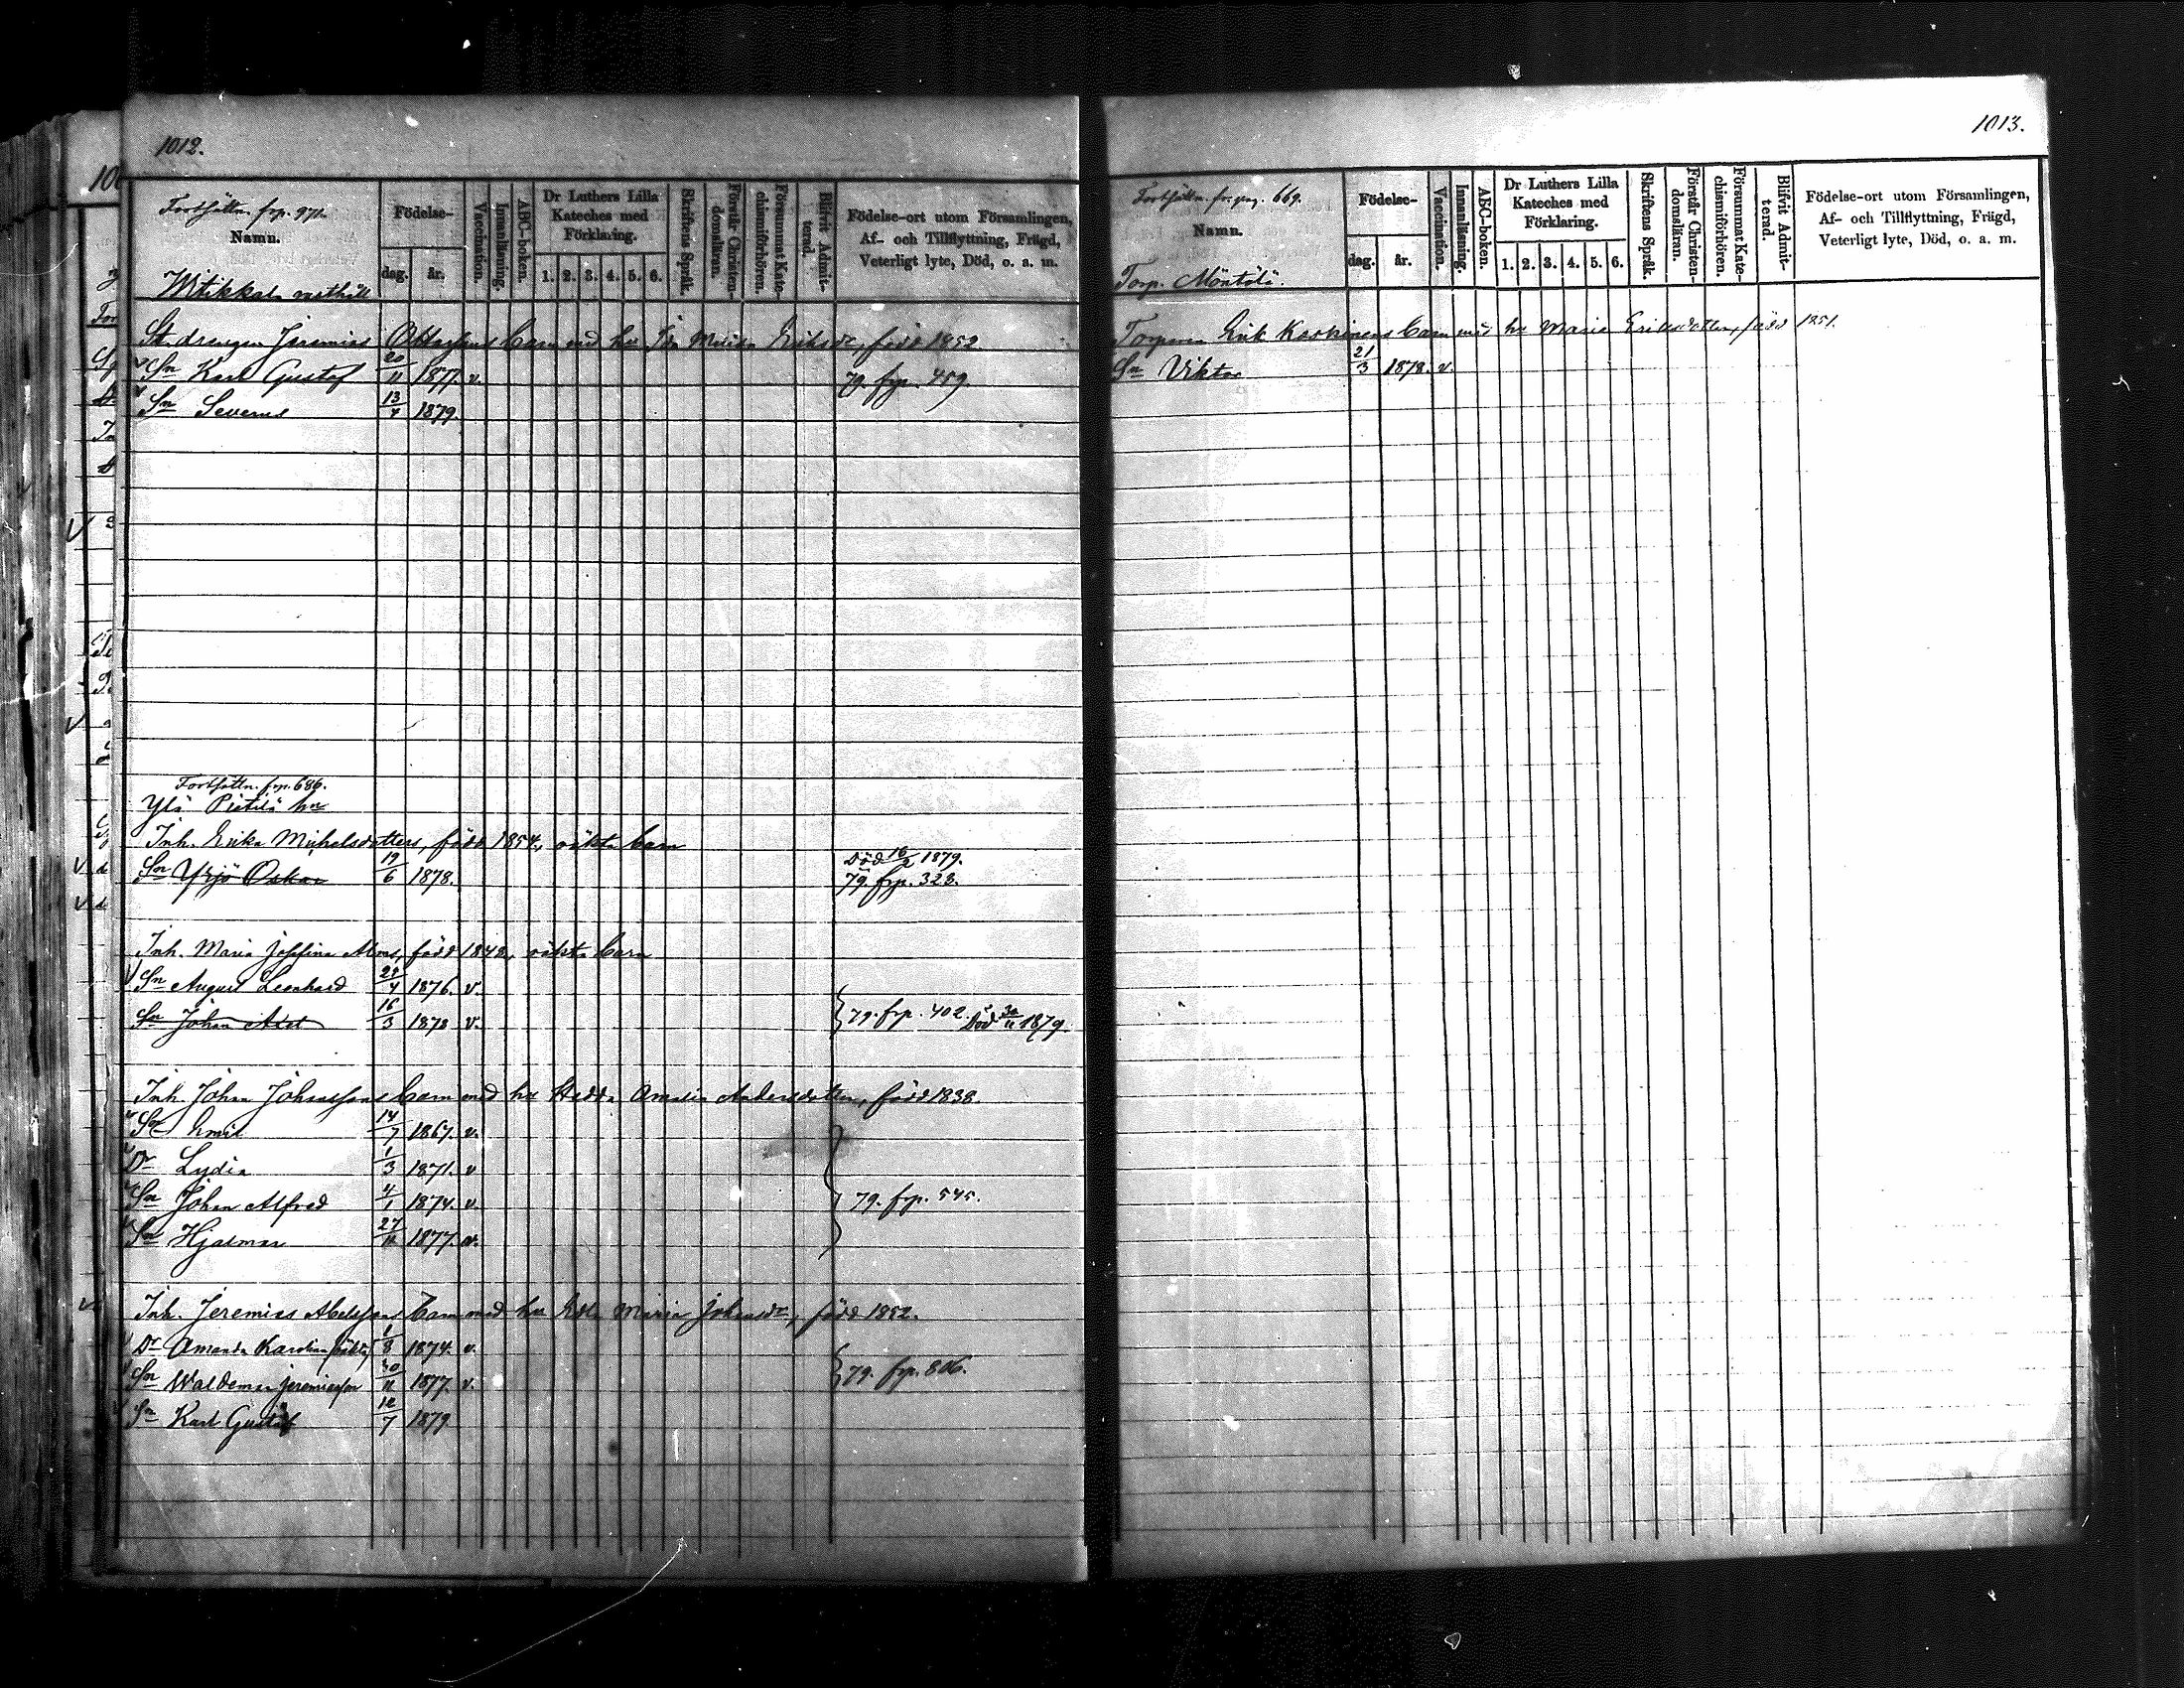 1012.
Fortsättn. frp. 971.
Namn.
Födelse-
dag.
år.
Vaccination.
Innanläsning.
ABC-boken.
Dr Luthers Lilla
Kateches med
Förklaring.
1. 2. 3. 4. 5. 6.
Skriftens Språk.
Förstår Christen-
domsläran.
Försummat Kate-
chismiförhören.
Blifvit Admit-
terad.
Födelse-ort utom Församlingen,
Af- och Tillflyttning, Frägd,
Veterligt lyte, Död, o. a. m.
St. drengen Jeremias barn med hu Ida Eriksdr, född 1852
Sn Karl Gustaf 20/11 1877. v. 79. frp. 459.
Sn Severus 13/4 1879.
Fortsättn. frp. 686.
Ylä Pietilä hn
Inh. Erika Michelsdotters, född 1854, oäkta barn
Död 16/2 1879.
Sn Yrjö Oskar 19/6 1878. 79. frp. 323.
Inh. Maria Josefina född 1842, oäkta barn
Sn August Leonhard 28/4 1876. v.
Sn Johan Axel 16/3 1878 v. 79. frp. 402. Död 30/11 1879
Inh. Johan Johanssons barn med hu Hedda Amalia Andersdotter, född 1838.
Sn Emil 14/7 1867. v.
Dr Lydia 1/3 1871. v
Sn Johan Alfred 4/1 1874. v. 79. frp. 545.
Sn Hjalmar 27/11 1877. v.
Inh. Jeremias Abelssons barn med hu Maria Johansdr, född 1852.
Dr Amanda Karolina (oäkta) 1/8 1874. v.
Sn Waldemar Jeremiasson 30/11 1877. v. 79. frp. 806.
Sn Karl Gustaf 12/7 1879
1013.
Fortsättn. fr. pag. 669.
Namn.
Torp. Mäntölä.
Födelse-
dag.
år.
Vaccination.
Innanläsning.
ABC-boken.
Dr Luthers Lilla
Kateches med
Förklaring.
1. 2. 3. 4. 5. 6.
Skriftens Språk.
Förstår Christen-
domsläran.
Försummat Kate-
chismiförhören.
Blifvit Admit-
terad.
Födelse-ort utom Församlingen,
Af- och Tillflyttning, Frägd,
Veterligt lyte, Död, o. a. m.
Torparen Erik Koskinens barn med hu Maria Eriksdotter, född 1851.
Sn Viktor 21/3 1878. v.